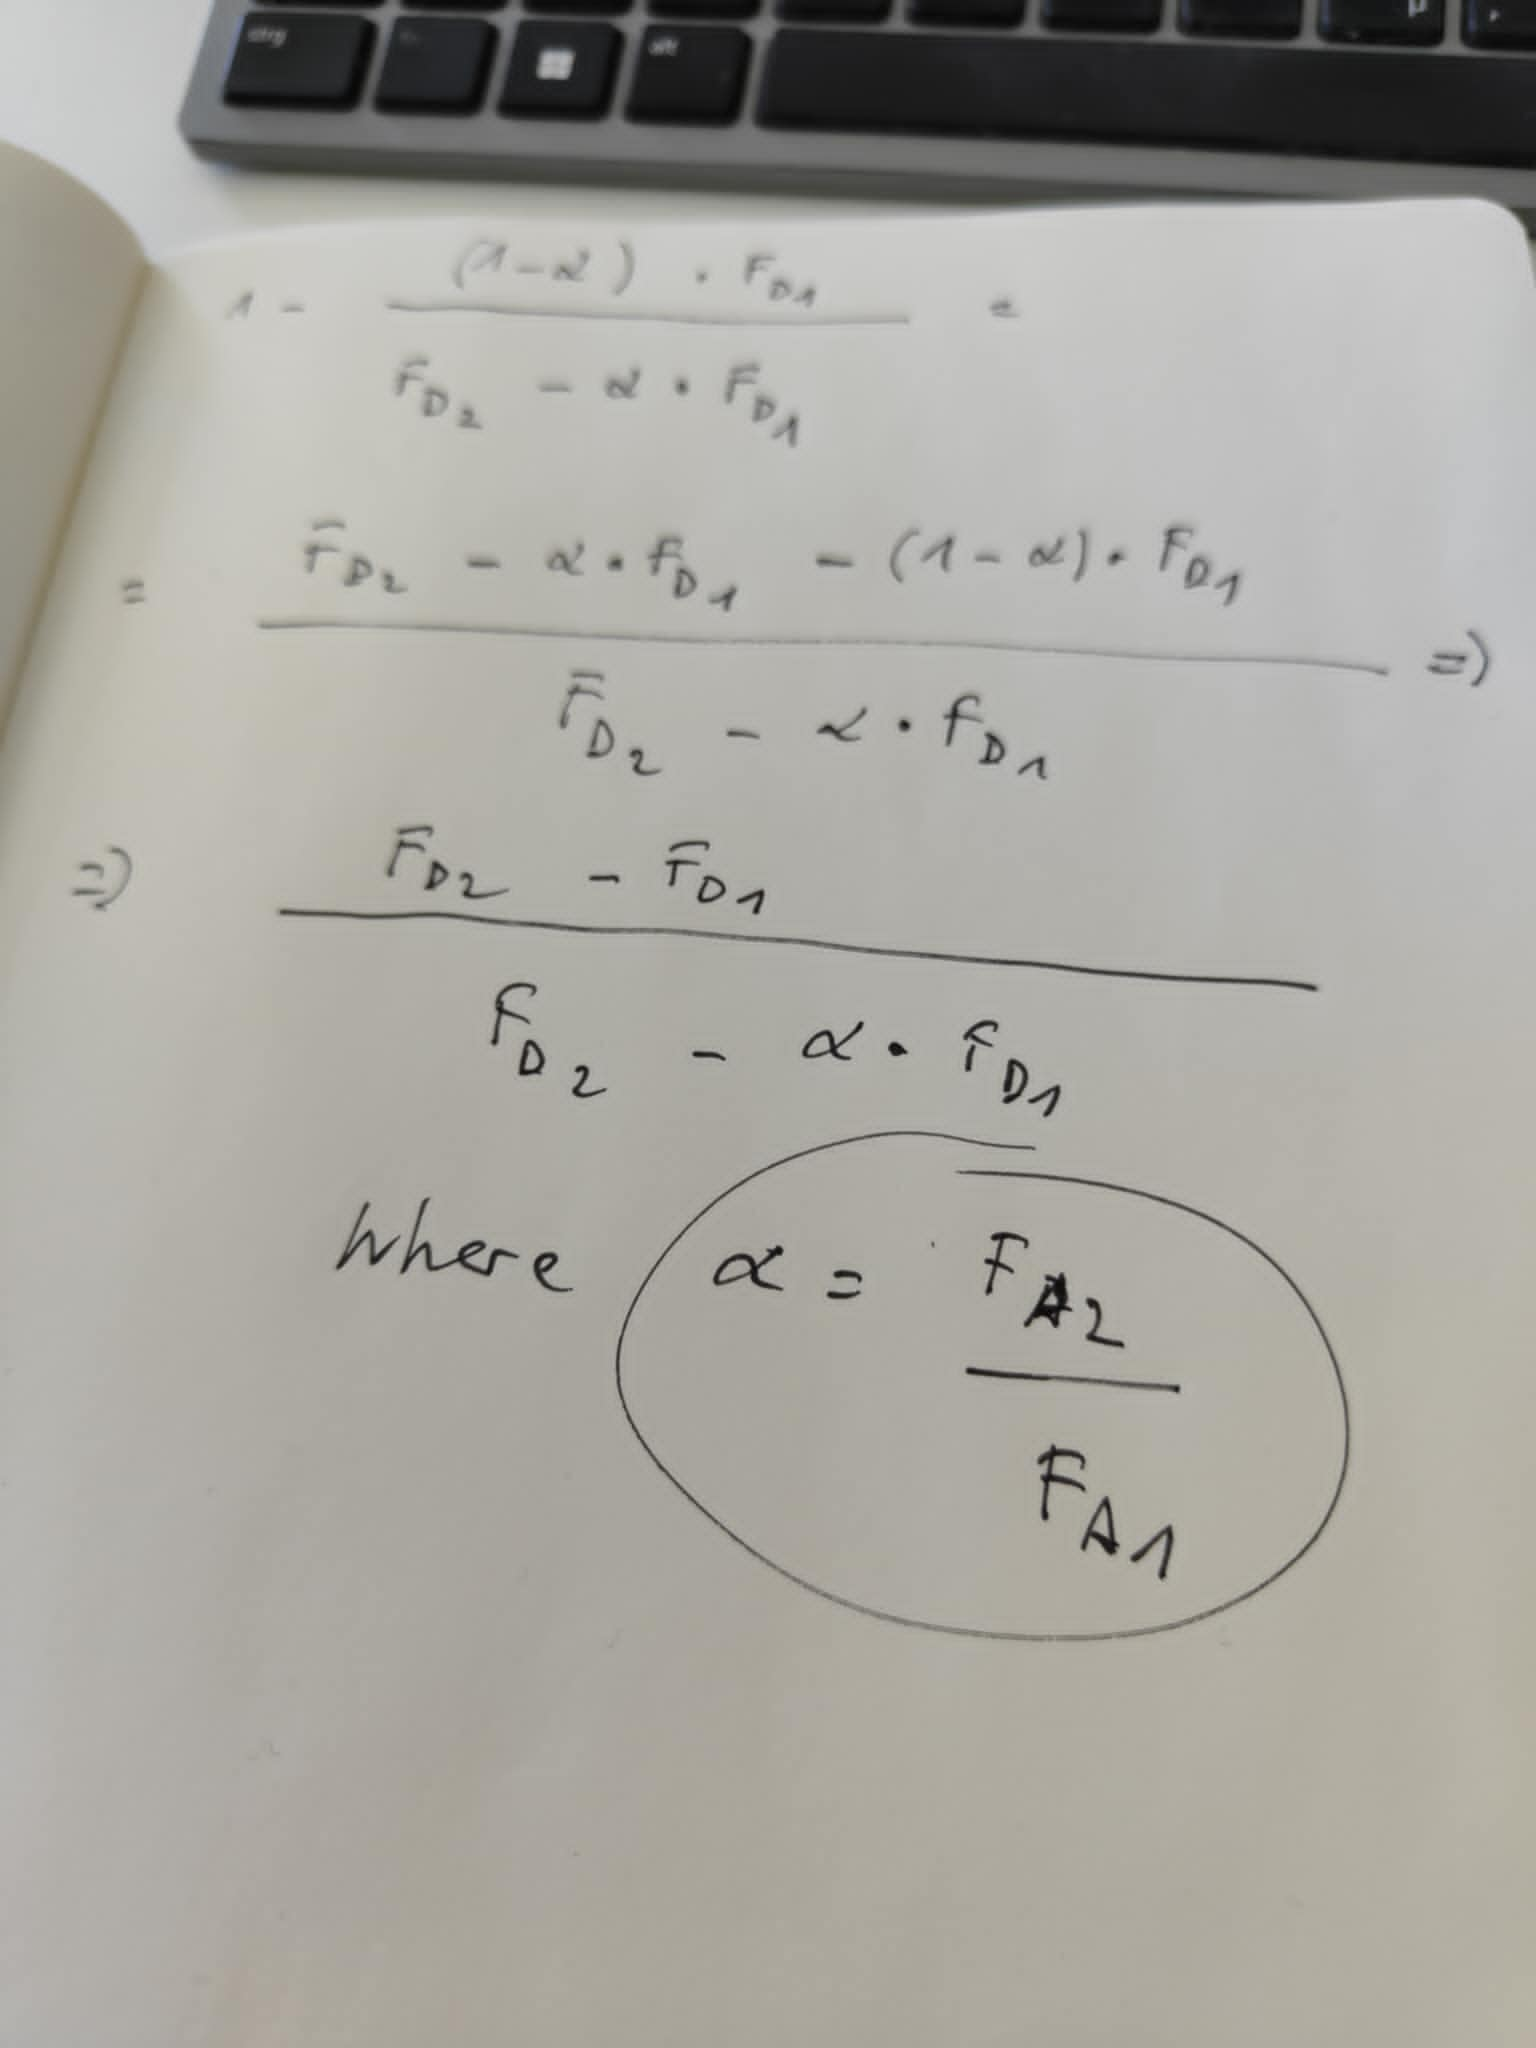 strg
alt
µ
(1-α) · F_D1
1 - ―――――― =
F_D2 - α · F_D1
= F_D2 - α · F_D1 - (1-α) · F_D1
―――――― =)
F_D2 - α · F_D1
=) F_D2 - F_D1
――――――
F_D2 - α · F_D1
where α = F_A2
――
F_A1